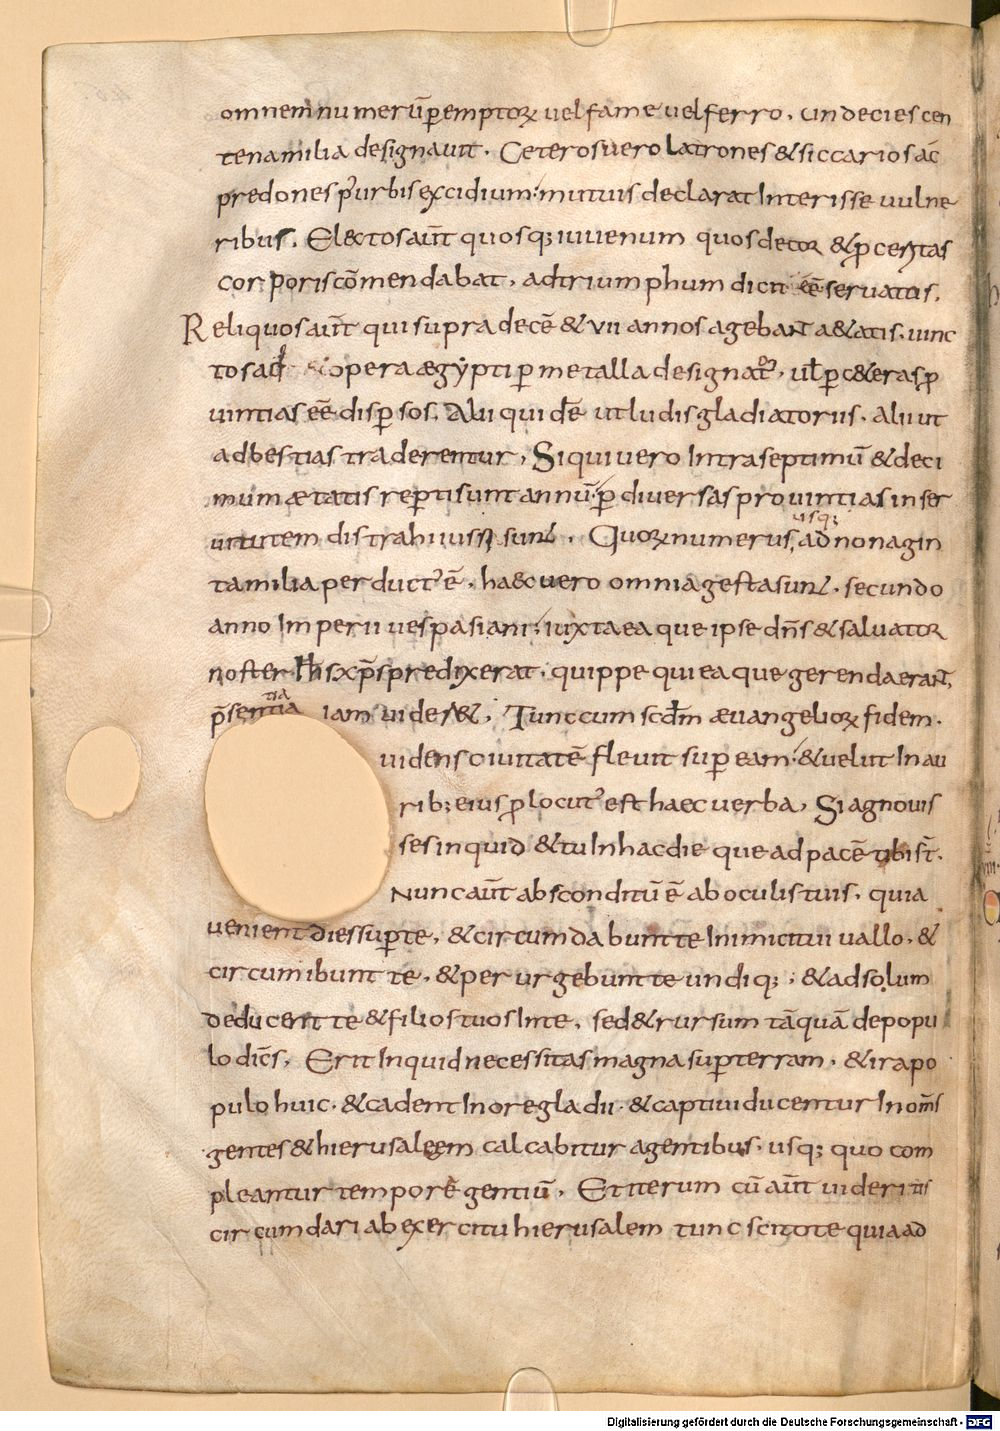 omnem numerū ꝑemptoꝝ uel fame uel ferro. undecies cen
tena milia designauit. Ceteros uero latrones & siccarios ac
predones p' urbis excidium: mutuis declarat Interisse uulne
ribus. Electos aūt quosq; iuuenum quos decor & ꝓceritas
corporis cōmendabat, ad triumphum dicit eē seruatus.
Reliquos aūt qui supra decē & VII annos agebant a&atis. uinc
tos ad opera ægypti ꝑ metalla designat, uł ꝑ c&eras ꝓ
uintias eē disꝑsos. Alii quidē ut ludis gladiatoriis. alii ut
ad bestias traderentur. Si qui uero Intra septimū & deci
mum ætatis reꝑti sunt annū: ꝑ diuersas prouintias in ser
uitutem distrahi iussi sunt. Quoꝝ numerus, usq; ad nonagin
ta milia perduct' ē. haec uero omnia gesta sunt. secundo
anno Imperii uespasiani: iuxta ea que ipse dn̄s & saluator
noster ihs xp̄s predixerat. quippe qui ea que gerenda erant,
p̄sentia tia iam uider&. Tunc cum scdm̄ æuangelioꝝ fidem.
uidens ciuitatē fleuit suꝑ eam: & uelut In au
rib; eius ꝓlocut' est haec uerba. Si agnouis
ses inquid & tu In hac die que ad pacē tibi st̄.
Nunc aūt absconditū ē ab oculis tuis. quia
uenient dies suꝑ te, & circumdabunt te Inimici tui uallo. &
circumibunt te. & perurgebunt te undiq;; & ad solum
deducent te & filios tuos In te. sed & rursum tāquā de popu
lo dic̄s. Erit Inquid necessitas magna suꝑ terram. & ira po
pulo huic. & cadent In ore gladii. & captiui ducentur In om̄s
gentes & hierusaleem calcabitur a gentibus. usq; quo com
pleantur tempore gentiū. Et iterum cū aūt uideritis
circumdari ab exercitu hierusalem tunc scitote quia ad
Digitalisierung gefördert durch die Deutsche Forschungsgemeinschaft - DFG